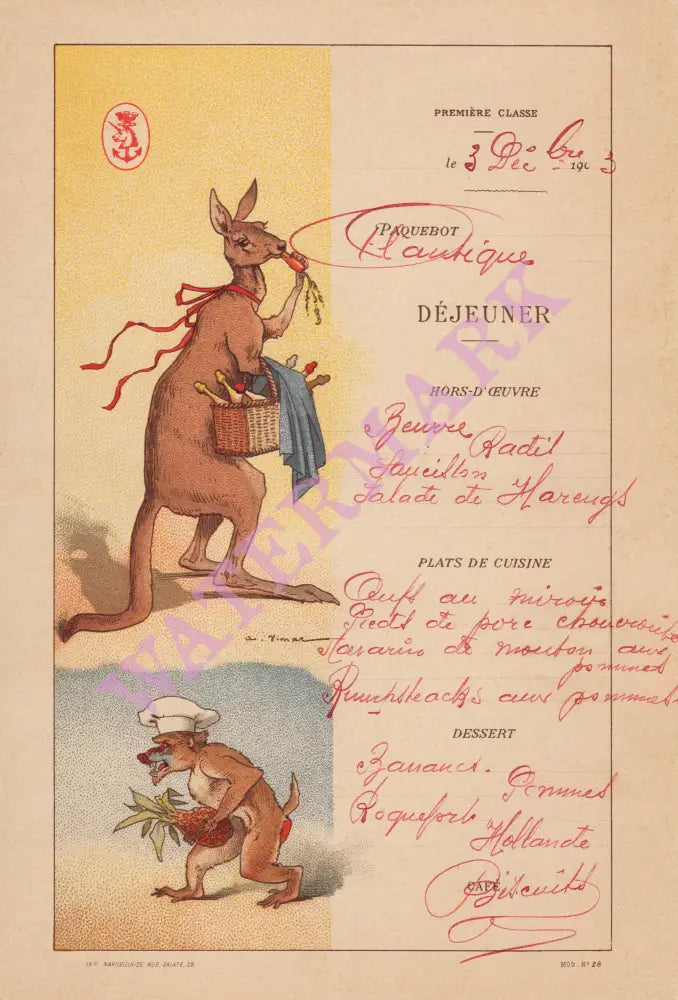 PREMIÈRE CLASSE
le 3 Décbre 1903
PAQUEBOT
DÉJEUNER
HORS-D'ŒUVRE
Beurre Radis
Saucisson
Salade de Harengs
PLATS DE CUISINE
Œufs au miroir
Pieds de porc choucroute
Navarin de mouton aux
pommes
Rumpsteacks aux pommes
DESSERT
Bananes. Pommes
Roquefort Hollande
CAFÉ
Biscuits
a. Vimar
IMP. MARSEILLAISE, RUE SAINTE, 39.
MOD. Nº 28
WATERMARK